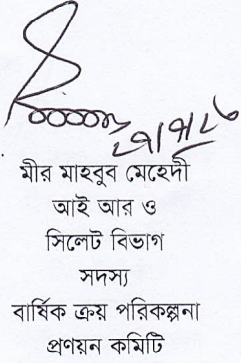 মীর মাহবুব মেহেদী
আই আর ও
সিলেট বিভাগ
সদস্য
বার্ষিক ক্রয় পরিকল্পনা
প্রণয়ন কমিটি